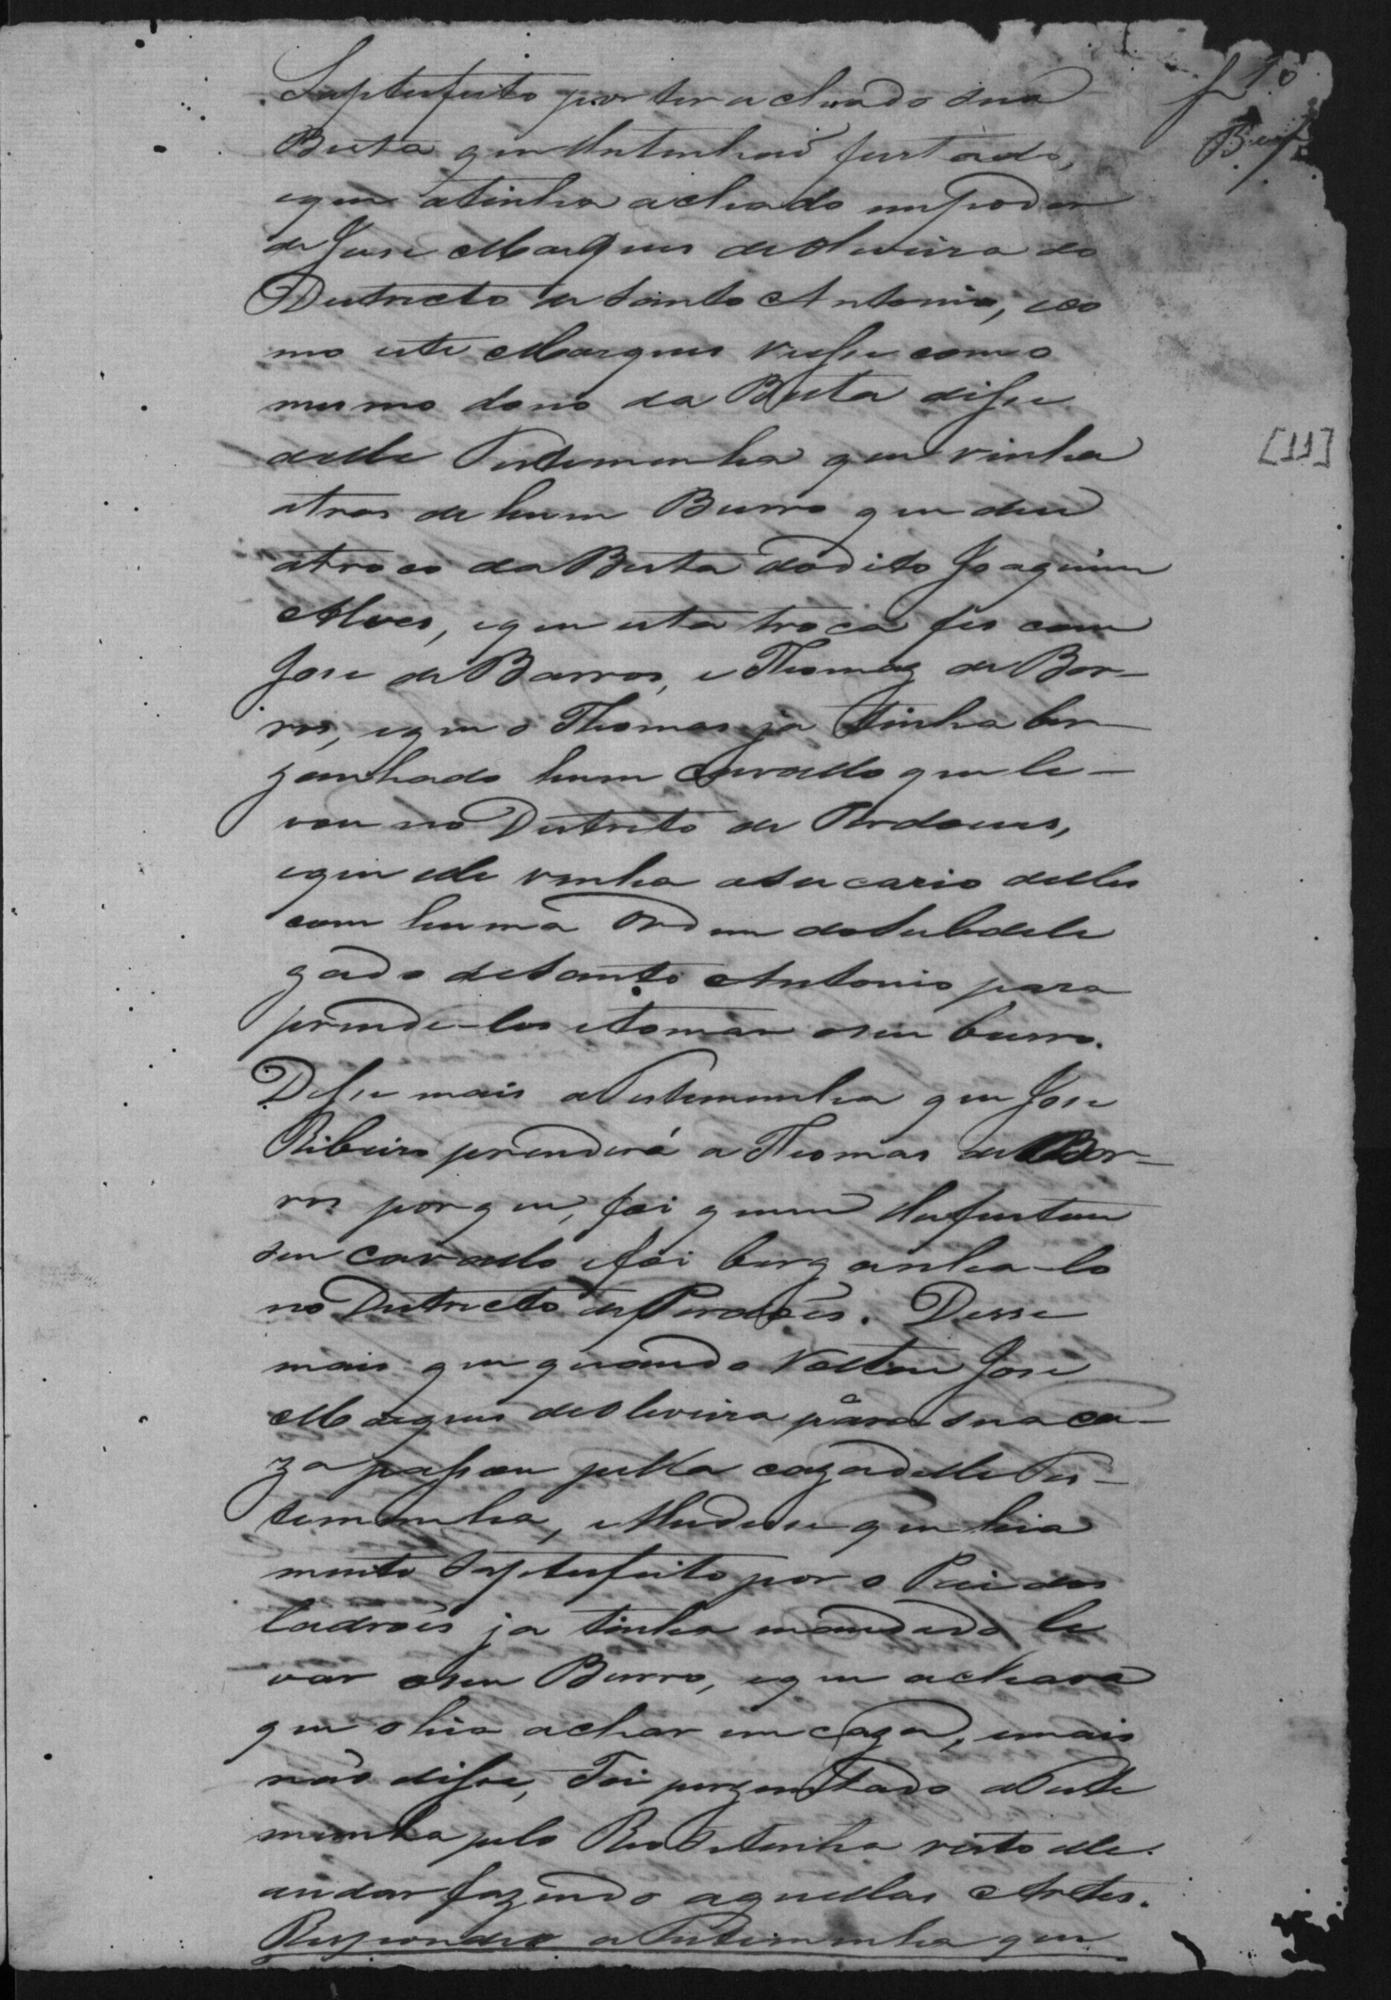 f 10
Saptesfeito por ter achado sua
Besta que lhe tinhaõ furtado,
eque atinha achado empoder
de Jose Marques de Oliveira do
Districto de Santo Antonio, eco
mo este Marques viesse como
mesmo dono da Besta disse
aelle Testemunha que vinha
atras de hum Burro que deu
atroco da Besta dodito Joaquim
Alves, eque esta troca fes com
Jose de Barros, e Thomaz de Bar-
ros, eque o Thomas ja tinha bar-
ganhado hum cavallo que le-
vou no Distrito de Perdoens,
eque elle vinha
com huma Ordem do Subdele
gado de Santo Antonio para
prende-los etomar oseu burro.
Disse mais aTestemunha que Jose
Ribeiro prenderá a Thomas de Bar-
ros porque, foi quem lhe furtou
seu cavallo efoi barganha-lo
no Districto de Perdoẽs. Desse
mais que quando Voltou Jose
Marques de Oliveira pâra sua ca-
za passou pella caza delle Tes-
temunha, elhe disse que hia
muito Saptesfeito por o Pai dos
ladroẽs ja tinha mandado le
var oseu Burro, eque achava
que o hia achar em caza, emais
naõ disse, Foi perguntado aTeste
munha pelo Reo setinha visto elle
andar fazendo aquellas Artes.
Respondeo aTestemunha que
[11]